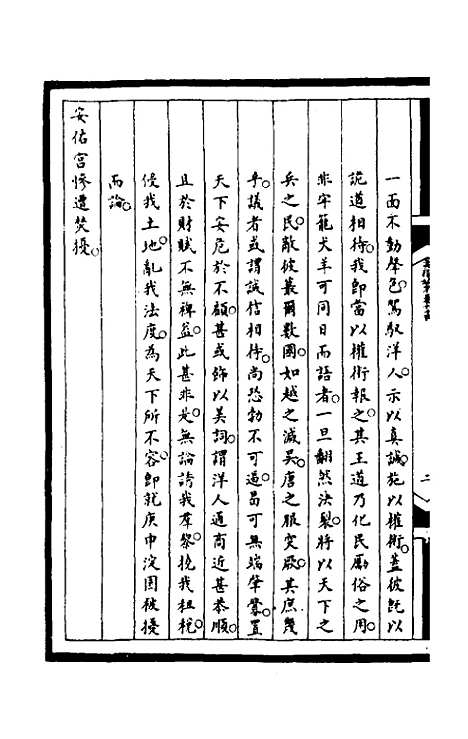 一面不動聲色。駕馭洋人。示以真誠。施以權術。蓋彼既以
詭道相待。我即當以權術報之。其王道乃化民勵俗之用。
非牢籠犬羊可同日而語者。一旦翻然決裂。將以天下之
兵之民。敵彼叢爾數國。如越之滅吳。唐之服突厥。其庶幾
乎。議者或謂誠信相待。尚恐勃不可遏。曷可無端肇釁。置
天下安危於不顧。甚或飾以美詞。謂洋人通商近甚恭順。
且於財賦不無裨益。此甚非是。無論誘我羣黎。挽我租稅。
侵我土地。亂我法度。為天下所不容。即就庚申淀園被擾
而論。
安佑宮慘遭焚擾。